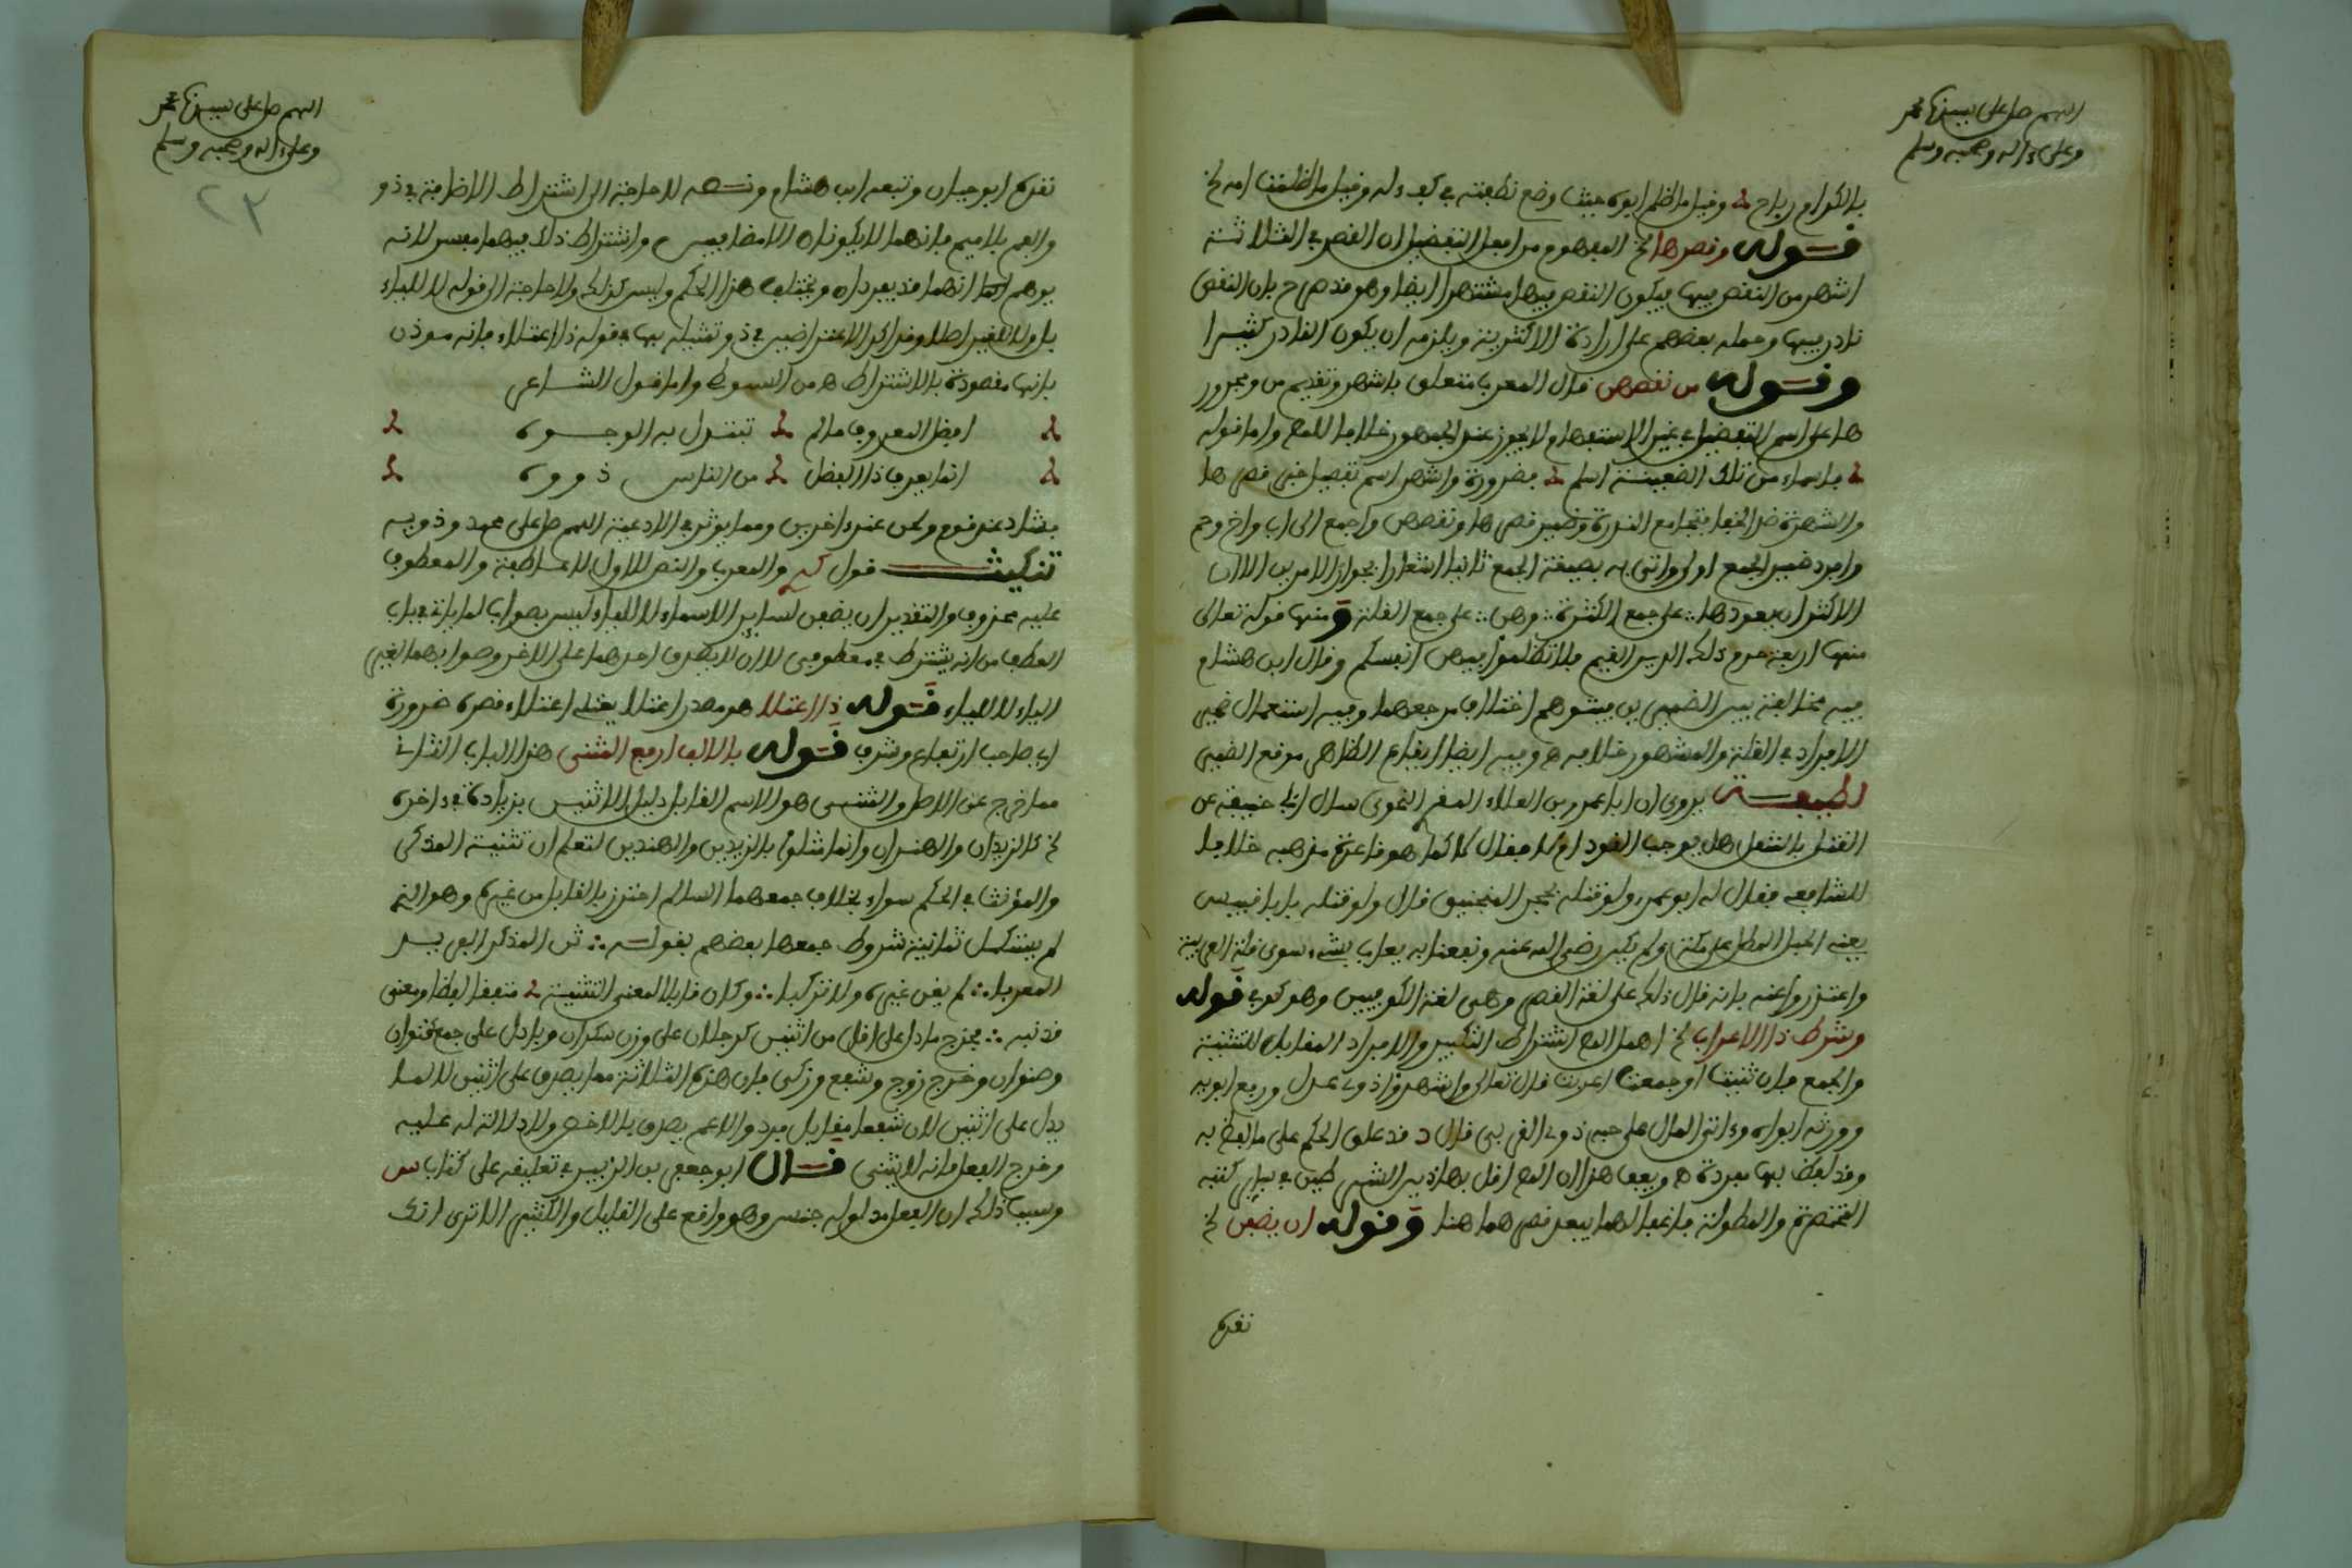 اللهم صل على سيدنا محمد
وعلى ءاله وصحبه وسلم
بالكرام رباح وقيل ما ظلم ابوه حيث وضع نطفته في كفء له وقيل ما ظلمت امه الخ
قوله وقصرها الخ المفهوم من افعل التفضيل ان القصر في الثلاثة
اشهر من النقص فيها فيكون النقص فيها مشتهرا ايضا وهو قد صرح بان النقص
نادر فيها وحمله بعضهم على ارادة الاكثرية ويلزمه ان يكون النادر كثيرا
وقوله من نقصهن قال المعرب متعلق باشهر وتقديم من ومجرور
ها على اسم التفضيل في غير الاستفهام ولا يجوز عند الجمهور خلافا للمص واما قوله
باسماء من تلك الضعينة املح فضرورة واشهر اسم تفضيل خبر قصرها
والشهرة ضد الخفاء فتجامع الندرة وضمير قصرها ونقصهن راجع الى اب واخ وحم
وافرد ضمير الجمع اولا واتى به بصيغة الجمع ثانيا اشعارا بجواز الامرين الا ان
الاكثر ان يعود ها على جمع الكثرة وهن على جمع القلة ومنها قوله تعالى
منها اربعة حرم ذلك الدين القيم فلا تظلموا فيهن انفسكم وقال ابن هشام
فيه مخالفة بين الضميرين فيتوهم اختلاف مرجعهما وفيه استعمال ضمير
الافراد في القلة والمشهور خلافه ه وفيه ايضا ايقاع الظاهر موقع الضمير
لطيفة يروى ان ابا عمرو بن العلاء المقرئ النحوي سال ابا حنيفة عن
القتل بالمثقل هل يوجب القود ام لا فقال لا كما هو قاعدة مذهبه خلافا
للشافعي فقال له ابو عمرو ولو قتله بحجر المنجنيق قال ولو قتله بابا قبيس
يعني الجبل المطل على مكة ولم يكن رضي الله عنه ونفعنا به يعاب بشيء سوى قلة العربية
واعتذروا عنه بانه قال ذلك على لغة القصر وهي لغة الكوفيين وهو كوفي قوله
وشرط ذا الاعراب الخ اهمل المص اشتراط التكبير والافراد المقابل للتثنية
والجمع فان ثنيت او جمعت اعربت قال تعالى واشهدوا ذوي عدل ورفع ابويه
وورثه ابواه وءاتى المال على حبه ذوي القربى قال د قد علق الحكم على ما لفظ به
وقد لفظ بها مفردة ه ويعد هذا ان المص اخل بهاذين الشرطين في سائر كتبه
المختصرة والمطولة فانفعالهما يبعد قصرهما هنا وقوله ان يضفن الخ
تقرير
اللهم صل على سيدنا محمد
وعلى ءاله وصحبه وسلم
٢٣
تقرير ابو حيان وتبعه ابن هشام ونصه لا حاجة الى اشتراط الاضافة في ذو
والفم بلا ميم فانهما لا يكونان الا مضافين واشتراط ذلك فيهما مفسد لانه
يوهم انهما قد يفردان ويختلف هذا الحكم وليس كذلك ولا حاجة الى قوله لا للياء
بانها مقصودة بالاشتراط ه من السيوطي واما قول الشاعر
افضل المعروف ما لم تبتذل به الوجوه
انما يعرف ذا الفضل من الناس ذووه
فشاذ عند قوم ولحن عند ءاخرين ومما يوثر في الادعية اللهم صل على محمد وذويه
تنكيت قول والمعرب والنص للاول لا عاطفة والمعطوف
عليه محذوف والتقدير ان يضفن لسائر الاسماء لا للياء ليس بصواب لما ياتي في باب
العطف من انه يشترط في معطوفي لا ان لا يصدق احدهما على الاخر وصوابهما لغير
الياء لا للياء قوله ذا اعتلا هو مصدر اعتلا يعتلي اعتلاء قصره ضرورة
اي صاحب ارتفاع وشرف قوله بالالف ارفع المثنى هذا الباب الثاني
مما خرج عن الاصل والمثنى هو الاسم القابل دليل الاثنين بزيادة في ءاخره
الخ كالزيدان والهندان وانما مثلوا بالزيدين والهندين لتعلم ان تثنية المذكر
والمؤنث في الحكم سواء بخلاف جمعهما السالم احترز بالقابل من غيره وهو الذي
لم يستكمل ثمانية شروط جمعها بعضهم بقوله ثن المذكر الفريد
المعربا لم يغن غيره ولا تركبا وكان قابلا لمعنى التثنية متفقا لفظا ومعنى
فدنيه فخرج ما دل على اقل من اثنين كرجلان على وزن سكران وما دل على جمع كقنوان
وصنوان وخرج زوج وشفع وزكى فان هذه الثلاثة مما يصدق على اثنين لا مما
يدل على اثنين لان شفعا مقابل فرد والاعم يصدق بالاخص ولا دلالة له عليه
وخرج الفعل فانه لا يثنى قال ابو جعفر بن الزبير في تعليقه على كتاب س
وسبب ذلك ان الفعل مدلوله جنس وهو واقع على القليل والكثير الا ترى انك